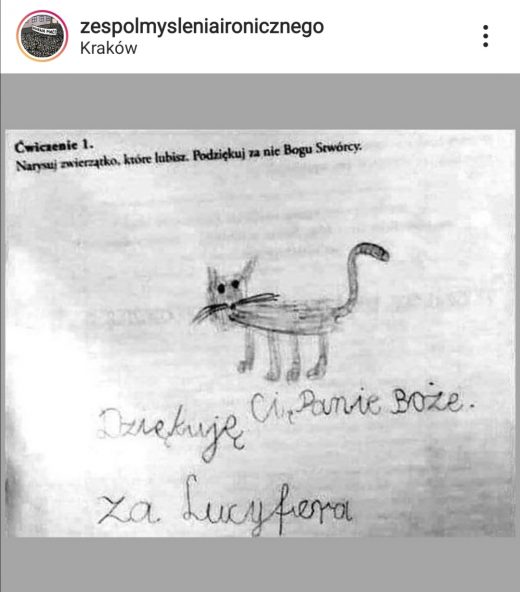 zespolmysleniaironicznego
Kraków
Ćwiczenie 1.
Narysuj zwierzątko, które lubisz. Podziękuj za nie Bogu Stwórcy.
Dziękuję Ci, Panie Boże.
za Lucyfera